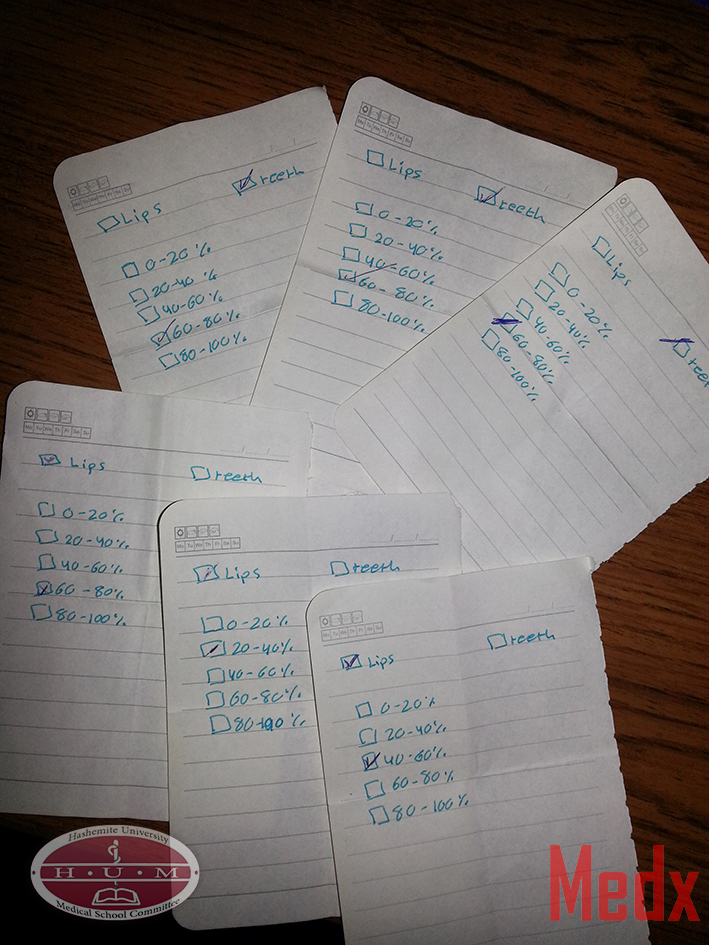 Mo Tu We Th Fr Sa Su
☐ Lips
☑ teeth
☐ 0-20%
☐ 20-40 %
☐ 40-60%
☑ 60-80%
☐ 80-100%
Mo Tu We Th Fr Sa Su
☐ Lips
☑ teeth
☐ 0-20%
☐ 20-40%
☐ 40-60%
☑ 60-80%
☐ 80-100%
☐ Lips
☑ teet
☐ 0-20%
☐ 20-40%
☐ 40-60%
☑ 60-80%
☐ 80-100%
Mo Tu We Th Fr Sa Su
☑ Lips
☐ teeth
☐ 0-20%
☐ 20-40%
☐ 40-60%
☑ 60-80%
☐ 80-100%
Mo Tu We Th Fr Sa Su
☑ Lips
☐ teeth
☐ 0-20%
☑ 20-40%
☐ 40-60%
☐ 60-80%
☐ 80-100%
Mo Tu We Th Fr Sa Su
☑ Lips
☐ teeth
☐ 0-20%
☐ 20-40%
☑ 40-60%
☐ 60-80%
☐ 80-100%
Hashemite University
H·U·M
Medical School Committee
Medx